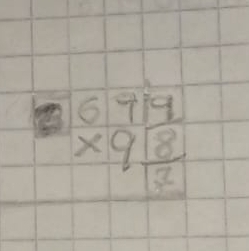 679
×98
7